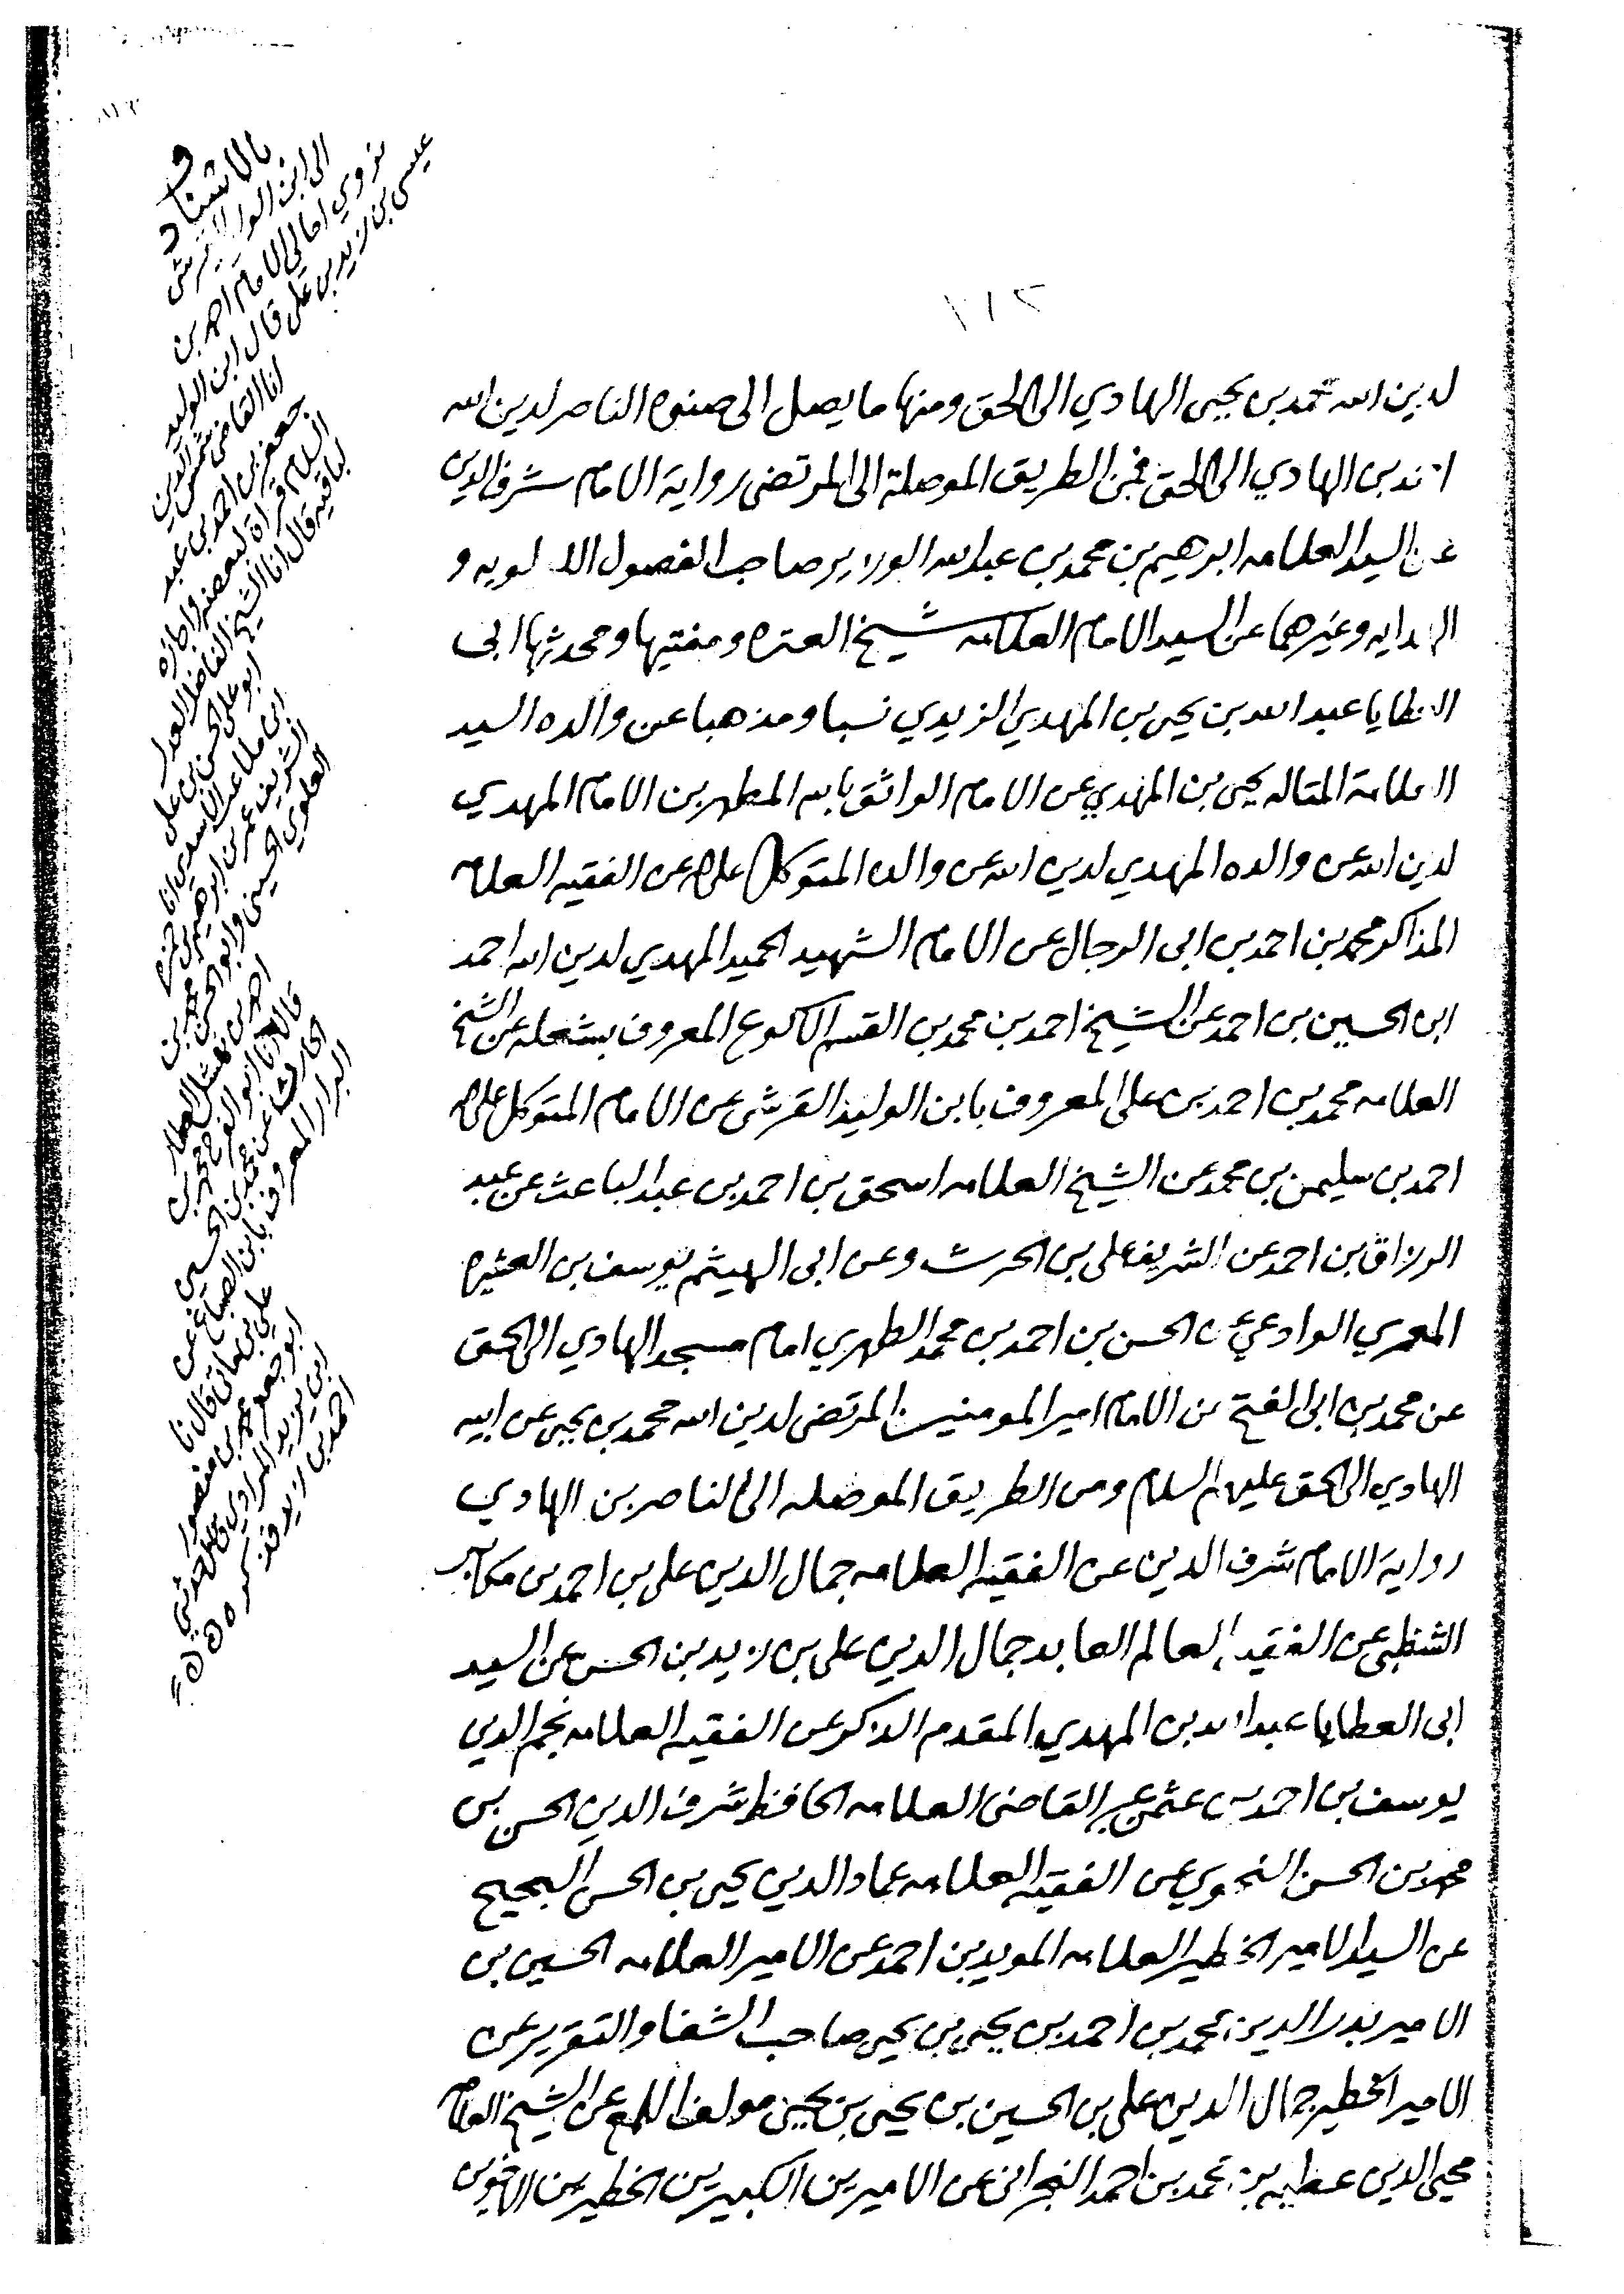 ٢١٢
لدين الله محمد بن يحيى الهادي الى الحق ومنها ما يصل الى صنوه الناصر لدين الله
احمد بن الهادي الى الحق فمن الطريق الموصلة الى المرتضى رواية الامام شرف الدين
عن السيد العلامه ابرهيم بن محمد بن عبد الله الوزير صاحب الفصول اللولويه و
الهدايه وغيرهما عن السيد الامام العلامه شيخ العتره ومفتيها ومحدثها ابي
العطايا عبد الله بن يحيى بن المهدي الزيدي نسبا ومذهبا عن والده السيد
العلامة المتاله يحيى بن المهدي عن الامام الواثق بالله المطهر بن الامام المهدي
لدين الله عن والده المهدي لدين الله عن والده المتوكل على الله عن الفقيه العلامه
المذاكر محمد بن احمد بن ابي الرجال عن الامام الشهيد الحميد المهدي لدين الله احمد
ابن الحسين بن احمد عن الشيخ احمد بن محمد بن القسم الاكوع المعروف بشعله عن الشيخ
العلامه محمد بن احمد بن علي المعروف بابن الوليد القرشي عن الامام المتوكل على الله
احمد بن سليمن بن محمد عن الشيخ العلامه اسحق بن احمد بن عبد الباعث عن عبد
الرزاق بن احمد عن الشريف علي بن الحرث وعن ابي الهيثم يوسف بن العشيره
المعمري الوادعي عن الحسن بن احمد بن محمد الطهري امام مسجد الهادي الى الحق
عن محمد بن ابي الفتح عن الامام امير المومنين المرتضى لدين الله محمد بن يحيى عن ابيه
الهادي الى الحق عليهم السلام ومن الطريق الموصله الى الناصر بن الهادي
رواية الامام شرف الدين عن الفقيه العلامه جمال الدين علي بن احمد بن مكابر
الشظبي عن الفقيه العالم العابد جمال الدين علي بن زيد بن الحسن عن السيد
ابي العطايا عبد الله بن المهدي المقدم الذكر عن الفقيه العلامه نجم الدين
يوسف بن احمد بن عثمن عن القاضي العلامه الحافظ شرف الدين الحسن بن
محمد بن الحسن النحوي عن الفقيه العلامه عماد الدين يحيى بن الحسن البحيح
عن السيد الامير الخطير العلامه المويد بن احمد عن الامير العلامه الحسين بن
الامير بدر الدين محمد بن احمد بن يحيى بن يحيى صاحب الشفا والتقرير عن
الامير الخطير جمال الدين علي بن الحسين بن يحيى بن يحيى مولف اللمع عن الشيخ العلامه
محيي الدين عطيه بن محمد بن احمد النجراني عن الاميرين الكبيرين الخطيرين الاخوين
و
بالاسناد
الى ابن الوليد القرشي
نروي امالي الامام احمد بن
عيسى بن زيد بن علي قال ابن الوليد
انا القاضي شمس الدين
جعفر بن احمد بن عبد
السلام قراة لبعضه واجازه
لباقيه قال انا الشيخ الفاضل العدل
ابو علي الحسن بن علي
ابن ملاعب الاسدي انا
الشريف عمر بن ابرهيم بن حمزه
العلوي الحسيني وابو الحسن محمد بن
احمد بن
قالا انا ابو الفرج محمد بن
الحارث عن محمد بن الحسين
البزاز المعروف بابن الصباغ عن
علي بن ماتي قال نا
ابو جعفر محمد بن منصور
ابن يزيد المرادي قال حدثني
احمد بن زيد فذكره